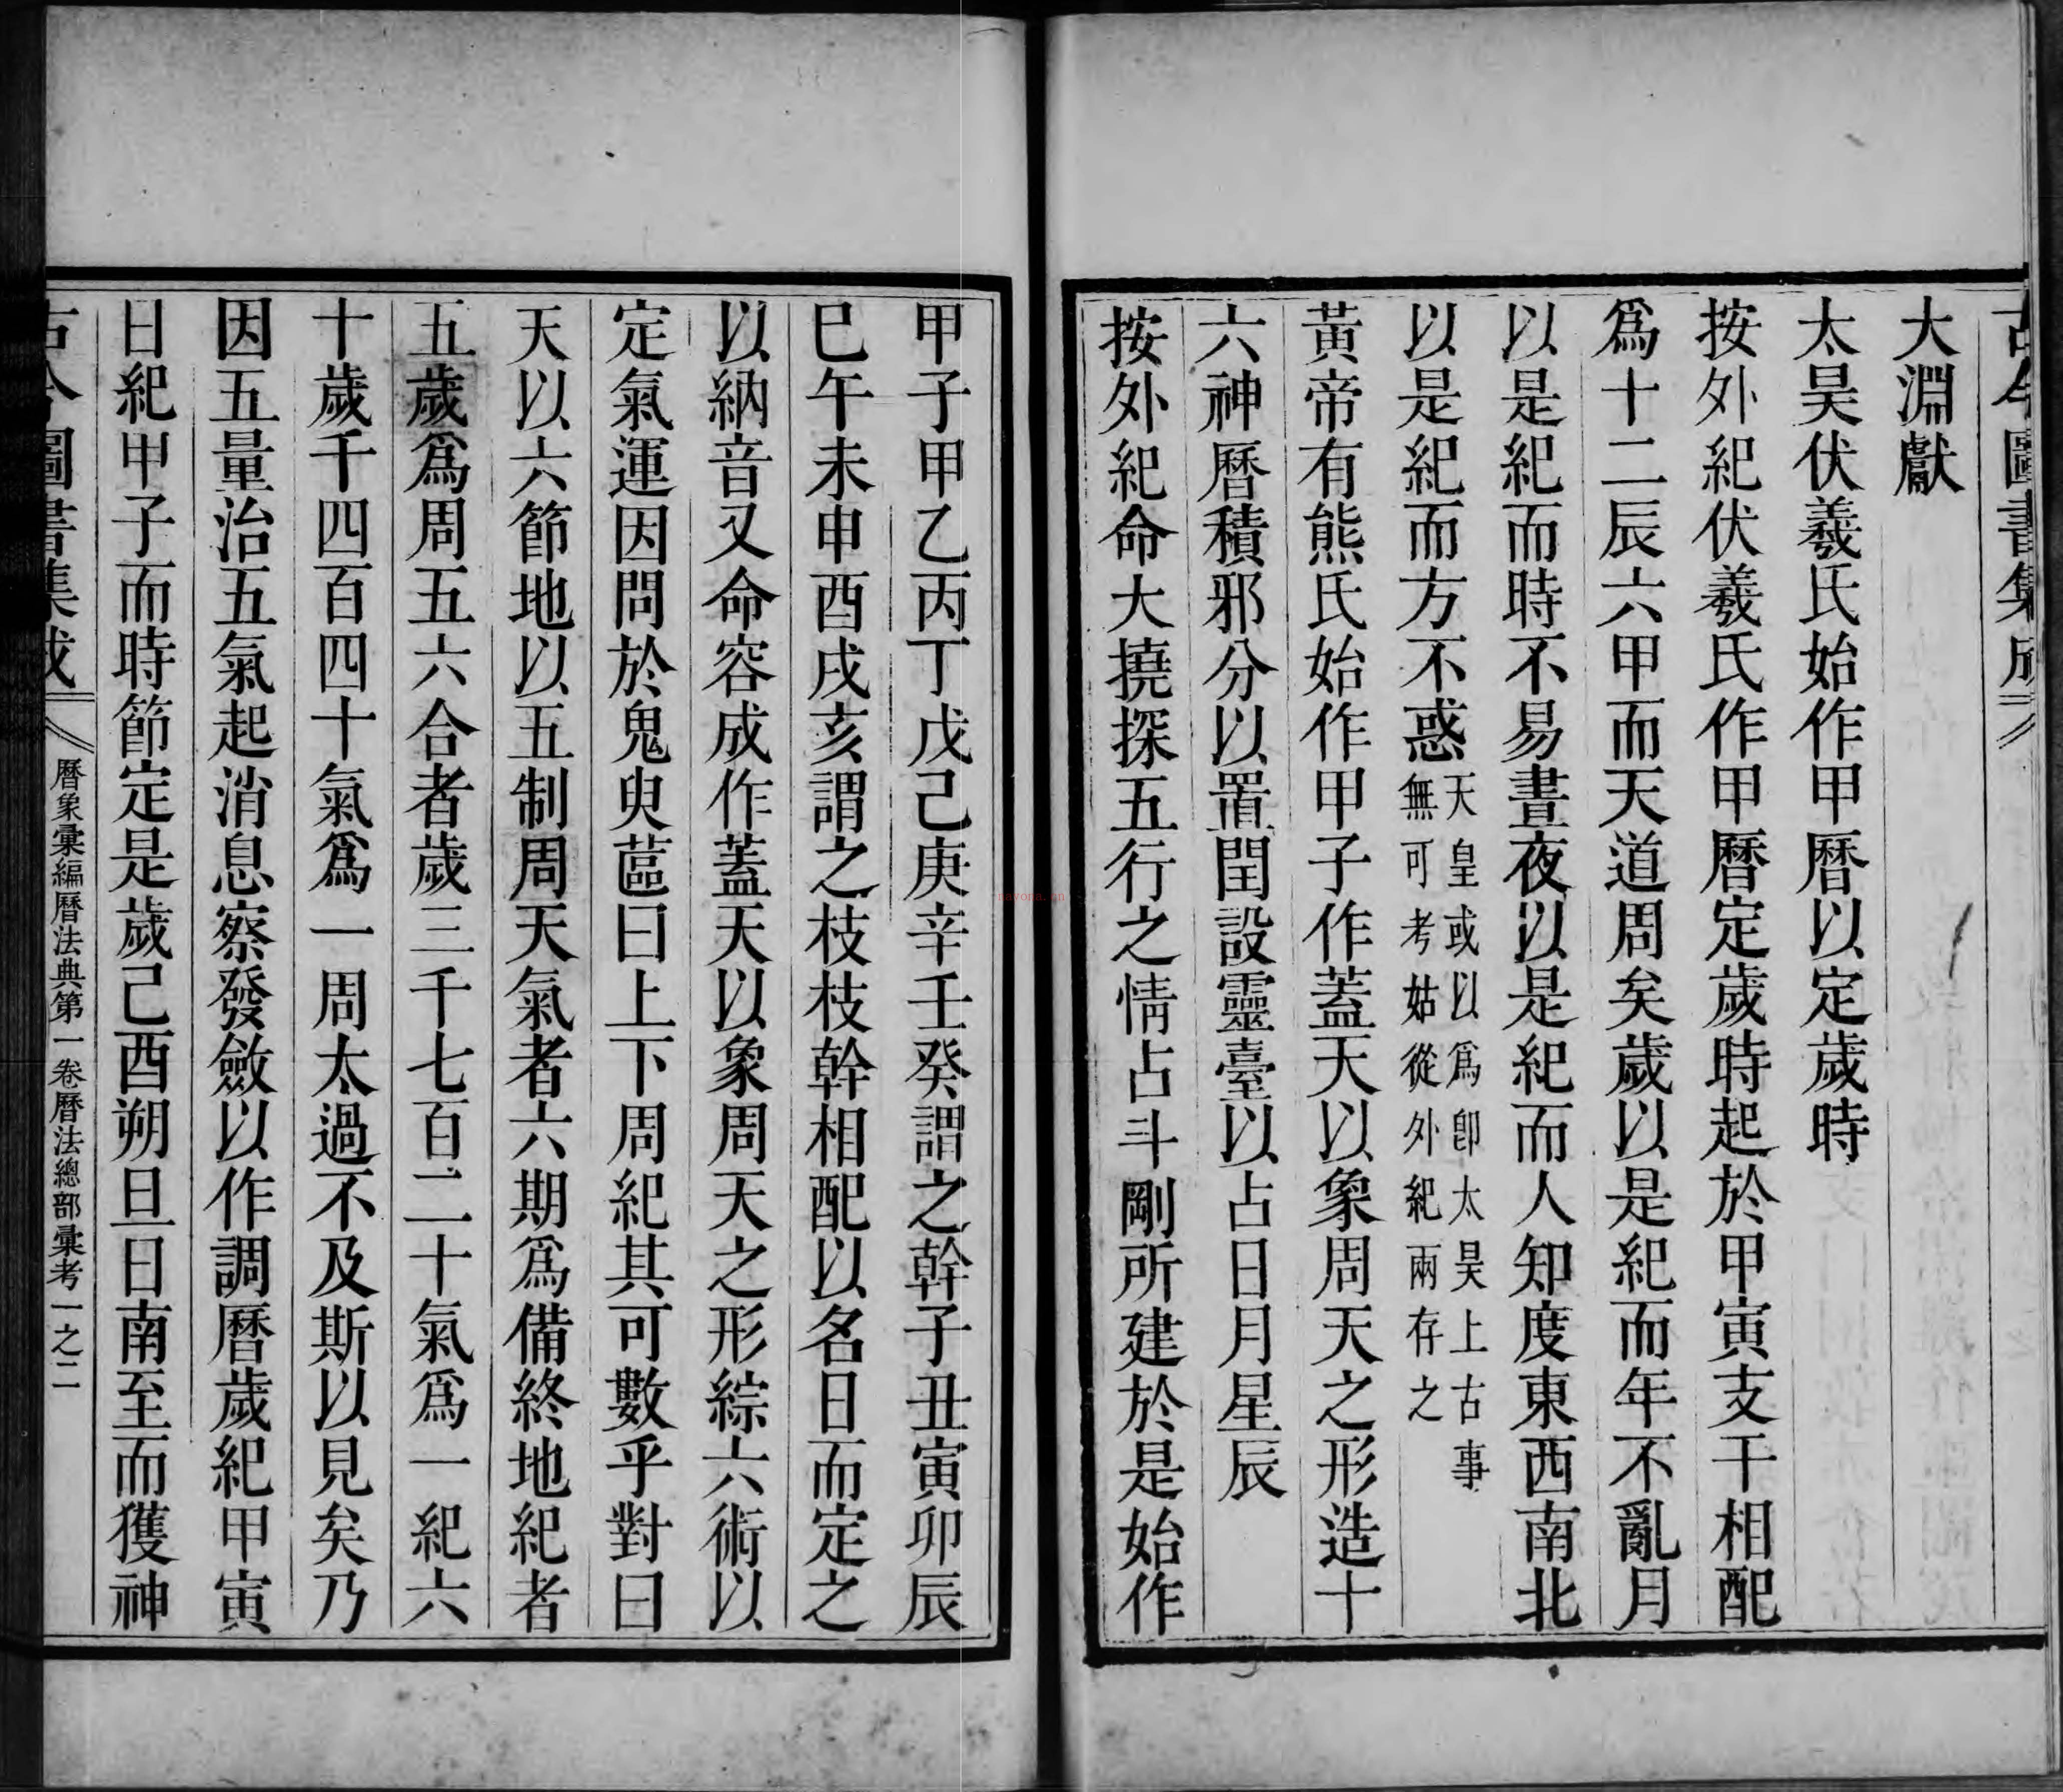 古今圖書集成
大淵獻
太昊伏羲氏始作甲曆以定歲時
按外紀伏羲氏作甲曆定歲時起於甲寅支干相配
爲十二辰六甲而天道周矣歲以是紀而年不亂月
以是紀而時不易晝夜以是紀而人知度東西南北
以是紀而方不惑
天皇或以爲卽太昊上古事
無可考姑從外紀兩存之
黃帝有熊氏始作甲子作蓋天以象周天之形造十
六神曆積邪分以置閏設靈臺以占日月星辰
按外紀命大撓探五行之情占斗剛所建於是始作
甲子甲乙丙丁戊己庚辛壬癸謂之幹子丑寅卯辰
巳午未申酉戌亥謂之枝枝幹相配以名日而定之
以納音又命容成作蓋天以象周天之形綜六術以
定氣運因問於鬼臾蓲曰上下周紀其可數乎對曰
天以六節地以五制周天氣者六期爲備終地紀者
五歲爲周五六合者歲三千七百二十氣爲一紀六
十歲千四百四十氣爲一周太過不及斯以見矣乃
因五量治五氣起消息察發斂以作調曆歲紀甲寅
日紀甲子而時節定是歲己酉朔旦日南至而獲神
古今圖書集成
曆象彙編曆法典第一卷曆法總部彙考一之二